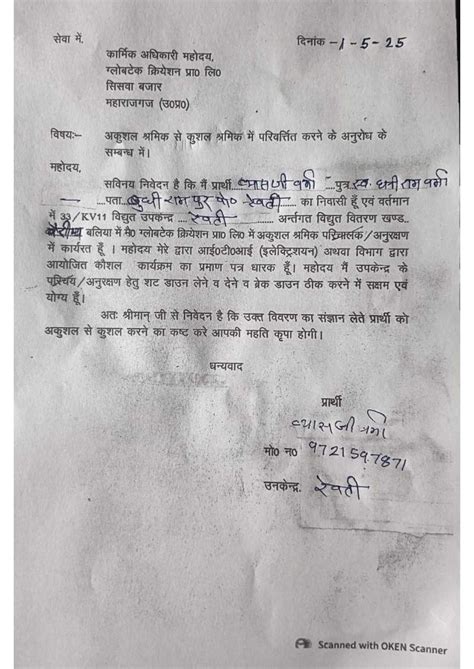 सेवा में,
दिनांक -1-5-25
कार्मिक अधिकारी महोदय,
ग्लोबटेक क्रियेशन प्रा0 लि0
सिसवा बजार
महाराजगज (उ0प्र0)
विषयः- अकुशल श्रमिक से कुशल श्रमिक में परिवर्त्तित करने के अनुरोध के
सम्बन्ध में।
महोदय,
सविनय निवेदन है कि मैं प्रार्थी व्यासजी वर्मा पुत्र स्व. धनीराम वर्मा
पता रामपुर पो0 रेवती का निवासी हूँ एवं वर्तमान
में 33/KV11 विद्युत उपकेन्द्र रेवती अर्न्तगत विद्युत वितरण खण्ड
बलिया में मै0 ग्लोबटेक क्रियेशन प्रा0 लि0 में अकुशल श्रमिक /अनुरक्षण
में कार्यरत हूँ । महोदय मेरे द्वारा आई0टी0आई (इलेक्ट्रिशयन) अथवा विभाग द्वारा
आयोजित कौशल कार्यक्रम का प्रमाण पत्र धारक हूँ। महोदय मैं उपकेन्द्र के
/अनुरक्षण हेतु शट डाउन लेने व देने व ब्रेक डाउन ठीक करने में सक्षम एवं
योग्य हूँ।
अतः श्रीमान् जी से निवेदन है कि उक्त विवरण का संज्ञान लेते प्रार्थी को
अकुशल से कुशल करने का कष्ट करे आपकी महति कृपा होगी।
धन्यवाद
प्रार्थी
व्यासजी वर्मा
मो0 न0 9721597871
उनकेन्द्र. रेवती
Scanned with OKEN Scanner